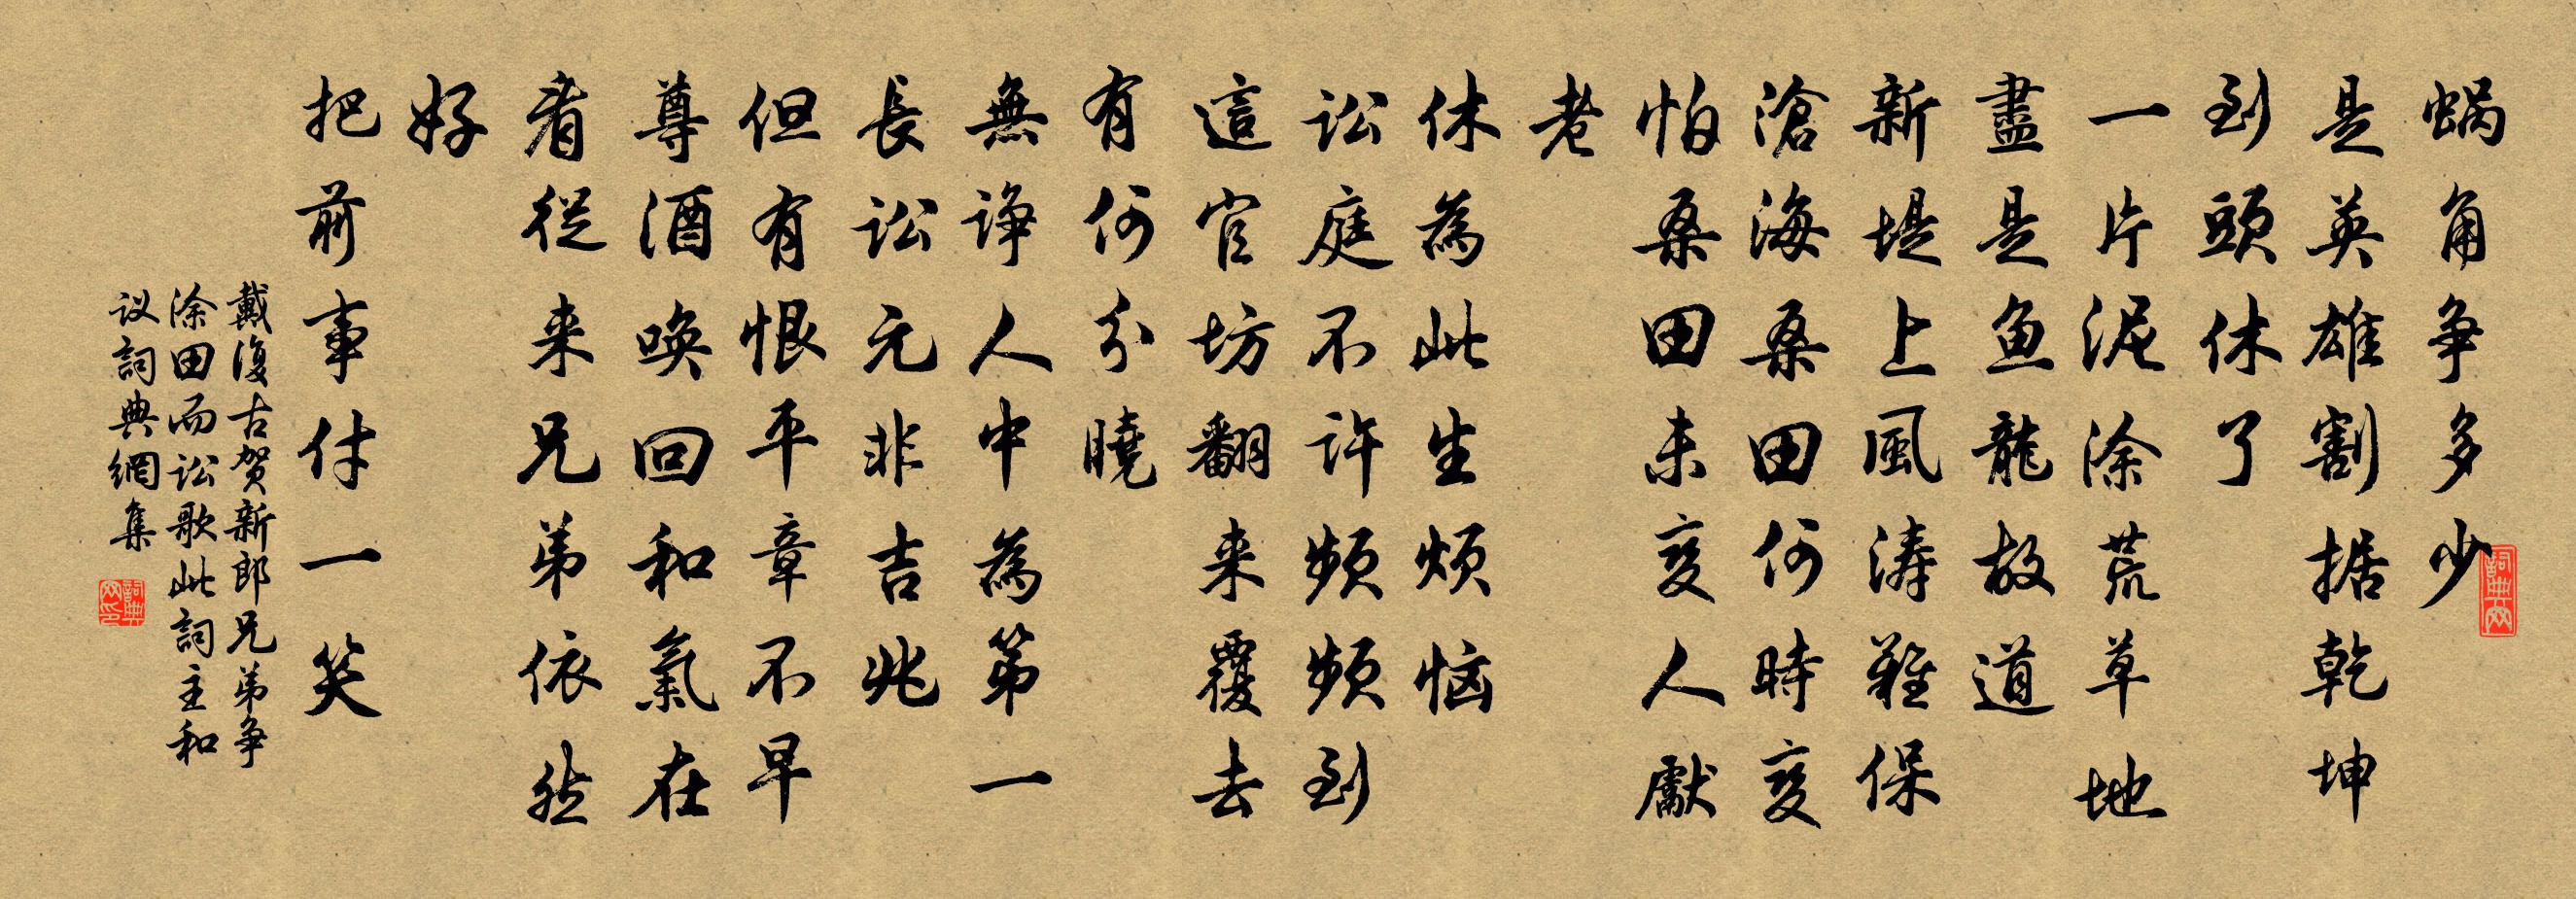 蜗角争多少
是英雄割据乾坤
到頭休了
一片泥涂荒草地
盡是魚龍故道
新堤上風涛難保
滄海桑田何時变
怕桑田未变人獻
老
休為此生烦恼
讼庭不许频频到
這官坊翻来覆去
有何分曉
無诤人中為第一
長讼元非吉兆
但有恨平章不早
尊酒唤回和氣在
看從来兄弟依然
好
把前事付一笑
戴復古贺新郎兄弟争
涂田而讼歌此詞主和
议詞典網集
詞典网
詞典网印